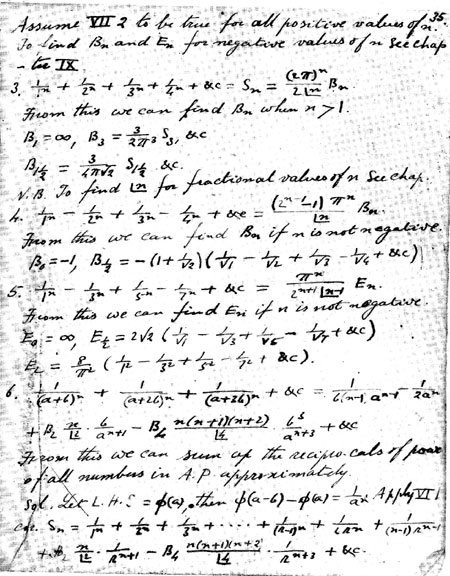 35.
Assume VII 2 to be true for all positive values of n.
To find Bn and En for negative values of n see chap
-ter IX.
3. 1/1ⁿ + 1/2ⁿ + 1/3ⁿ + 1/4ⁿ + &c = Sn = (2π)ⁿ/2|n Bn.
From this we can find Bn when n > 1.
B₁ = ∞, B₃ = 3/2π³ S₃, &c
B₁½ = 3/4π√2 S₁½ &c.
N.B. To find |n for fractional values of n see chap.
4. 1/1ⁿ - 1/2ⁿ + 1/3ⁿ - 1/4ⁿ + &c = (2ⁿ⁻¹-1)πⁿ/|n Bn.
From this we can find Bn if n is not negative.
B₀ = -1, B½ = -(1+1/√2)(1/√1 - 1/√2 + 1/√3 - 1/√4 + &c)
5. 1/1ⁿ - 1/3ⁿ + 1/5ⁿ - 1/7ⁿ + &c = πⁿ/2ⁿ⁺¹|n-1 En.
From this we can find En if n is not negative.
E₀ = ∞, E½ = 2√2 (1/√1 - 1/√3 + 1/√5 - 1/√7 + &c)
E₂ = 8/π² (1/1² - 1/3² + 1/5² - 1/7² + &c).
6. 1/(a+b)ⁿ + 1/(a+2b)ⁿ + 1/(a+3b)ⁿ + &c = 1/b(n-1)aⁿ⁻¹ - 1/2aⁿ
+ B₂ n/|2 · b/aⁿ⁺¹ - B₄ n(n+1)(n+2)/|4 · b³/aⁿ⁺³ + &c
From this we can sum up the reciprocals of powe
of all numbers in A.P. approximately.
Sol. Let L.H.S = φ(a), then φ(a-b) - φ(a) = 1/aⁿ Apply VI 1
cor. Sn = 1/1ⁿ + 1/2ⁿ + 1/3ⁿ + ···· + 1/(r-1)ⁿ + 1/2rⁿ + 1/(n-1)rⁿ⁻¹
+ B₂ n/|2 · 1/rⁿ⁺¹ - B₄ n(n+1)(n+2)/|4 · 1/rⁿ⁺³ + &c.